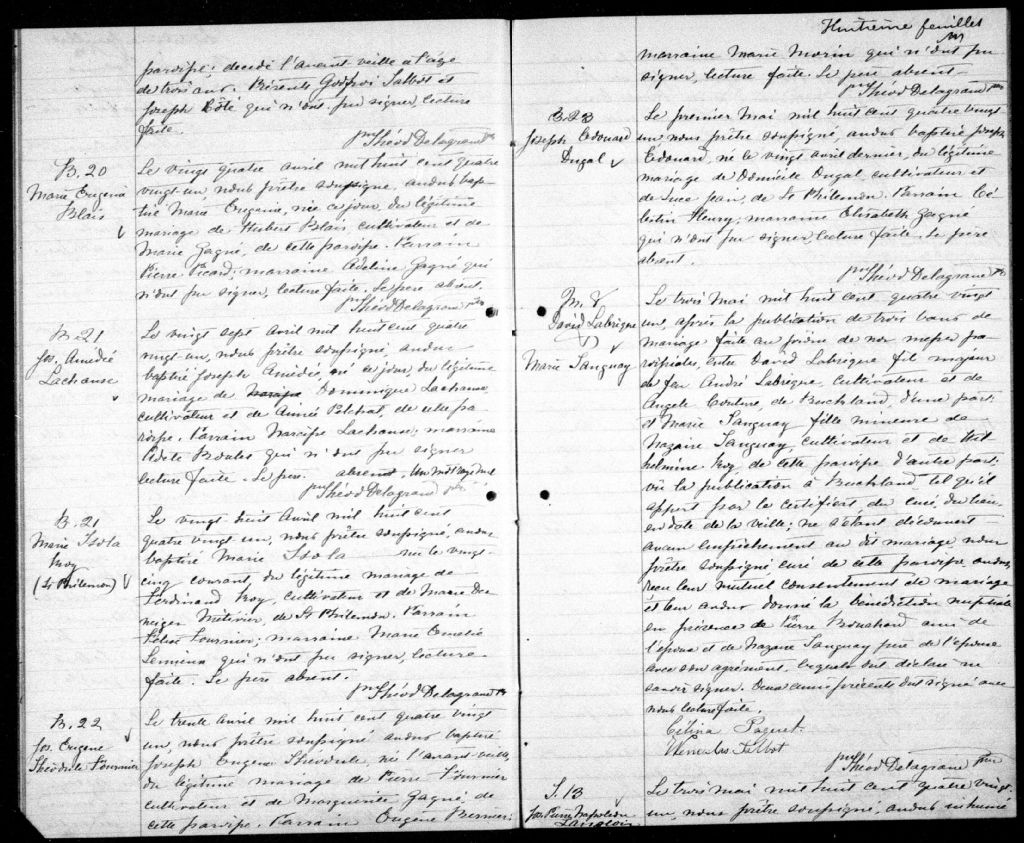 paroisse; décédé l'avant veille à l'âge
de trois ans. Présents Godfroi Talbot et
Joseph Côté qui n'ont pu signer, lecture
faite.
Théod Delagrave ptre
B. 20
Marie Eugenie
Blais
Le vingt quatre avril mil huit cent quatre
vingt-un, nous prêtre soussigné, avons bap-
tisé Marie Eugenie, née ce jour, du légitime
mariage de Hubert Blais cultivateur et de
Marie Gagné, de cette paroisse. Parrain
Pierre Picard; marraine Adeline Gagné qui
n'ont pu signer, lecture faite. Le père absent.
Théod Delagrave ptre
B. 21
Jos. Amédée
Lachanse
Le vingt sept avril mil huit cent quatre
vingt-un, nous prêtre soussigné, avons
baptisé Joseph Amédée, né ce jour, du légitime
mariage de Dominique Lachanse
cultivateur et de Aimée Pelchat, de cette pa-
roisse. Parrain Narcisse Lachanse; marraine
qui n'ont pu signer
lecture faite. Le père absent. Un mot rayé nul
Théod Delagrave ptre
B. 21
Marie Isola
Roy
(St Philemon)
Le vingt huit Avril mil huit cent
quatre vingt un, nous prêtre soussigné, avons
baptisé Marie Isola née le vingt-
cinq courant, du légitime mariage de
Ferdinand Roy, cultivateur et de Marie Des
neiges Métivier, de St Philemon. Parrain
Fournier; marraine Marie
Lemieux qui n'ont pu signer, lecture
faite. Le père absent.
Théod Delagrave ptre
B. 22
Jos. Eugene
Théodule Fournier
Le trente avril mil huit cent quatre vingt
un, nous prêtre soussigné avons baptisé
Joseph Eugene Théodule, né l'avant veille,
du légitime mariage de Pierre Fournier
cultivateur et de Marguerite Gagné, de
cette paroisse. Parrain Eugène Bernier;
Huitième feuillet
marraine Marie Morin qui n'ont pu
signer, lecture faite. Le père absent
Théod Delagrave ptre
B. 23
Joseph Edouard
Dugal
Le premier Mai mil huit cent quatre vingt
un, nous prêtre soussigné avons baptisé Joseph
Edouard, né le vingt avril dernier, du légitime
mariage de Domicile Dugal, cultivateur et
de Luce Jean, de St Philemon. Parrain Cé-
lestin Fleury; marraine Elisabeth Gagné
qui n'ont pu signer, lecture faite. Le père
absent.
Théod Delagrave ptre
M. 8
David Labrèque
&
Marie Tanguay
Le trois Mai mil huit cent quatre vingt
un, après la publication de trois bans de
mariage faite au prône de nos messes pa-
roissiales, entre David Labrèque fils majeur
de feu André Labrèque, cultivateur et de
Angèle Couture, de Buckland, d'une part;
et Marie Tanguay fille mineure de
Nazaire Tanguay, cultivateur et de Wil
helmine Roy, de cette paroisse d'autre part;
vu la publication à Buckland, tel qu'il
appert par le certificat, du curé, du lieu,
en date de la veille; ne s'étant découvert
aucun empêchement au dit mariage nous
prêtre soussigné curé de cette paroisse avons
reçu leur mutuel consentement de mariage
et leur avons donné la bénédiction nuptiale
en présence de Pierre Bouchard ami de
l'époux et de Nazaire Tanguay père de l'épouse
avec son agrément. Lesquels ont déclaré ne
savoir signer. Deux amis présents ont signé avec
nous lecture faite.
Célina Paquet
Wenceslas Talbot
Théod Delagrave ptre
S. 13
Jos. Pierre Napoléon
Langlois
Le trois mai mil huit cent quatre vingt-
un, nous prêtre soussigné, avons inhumé